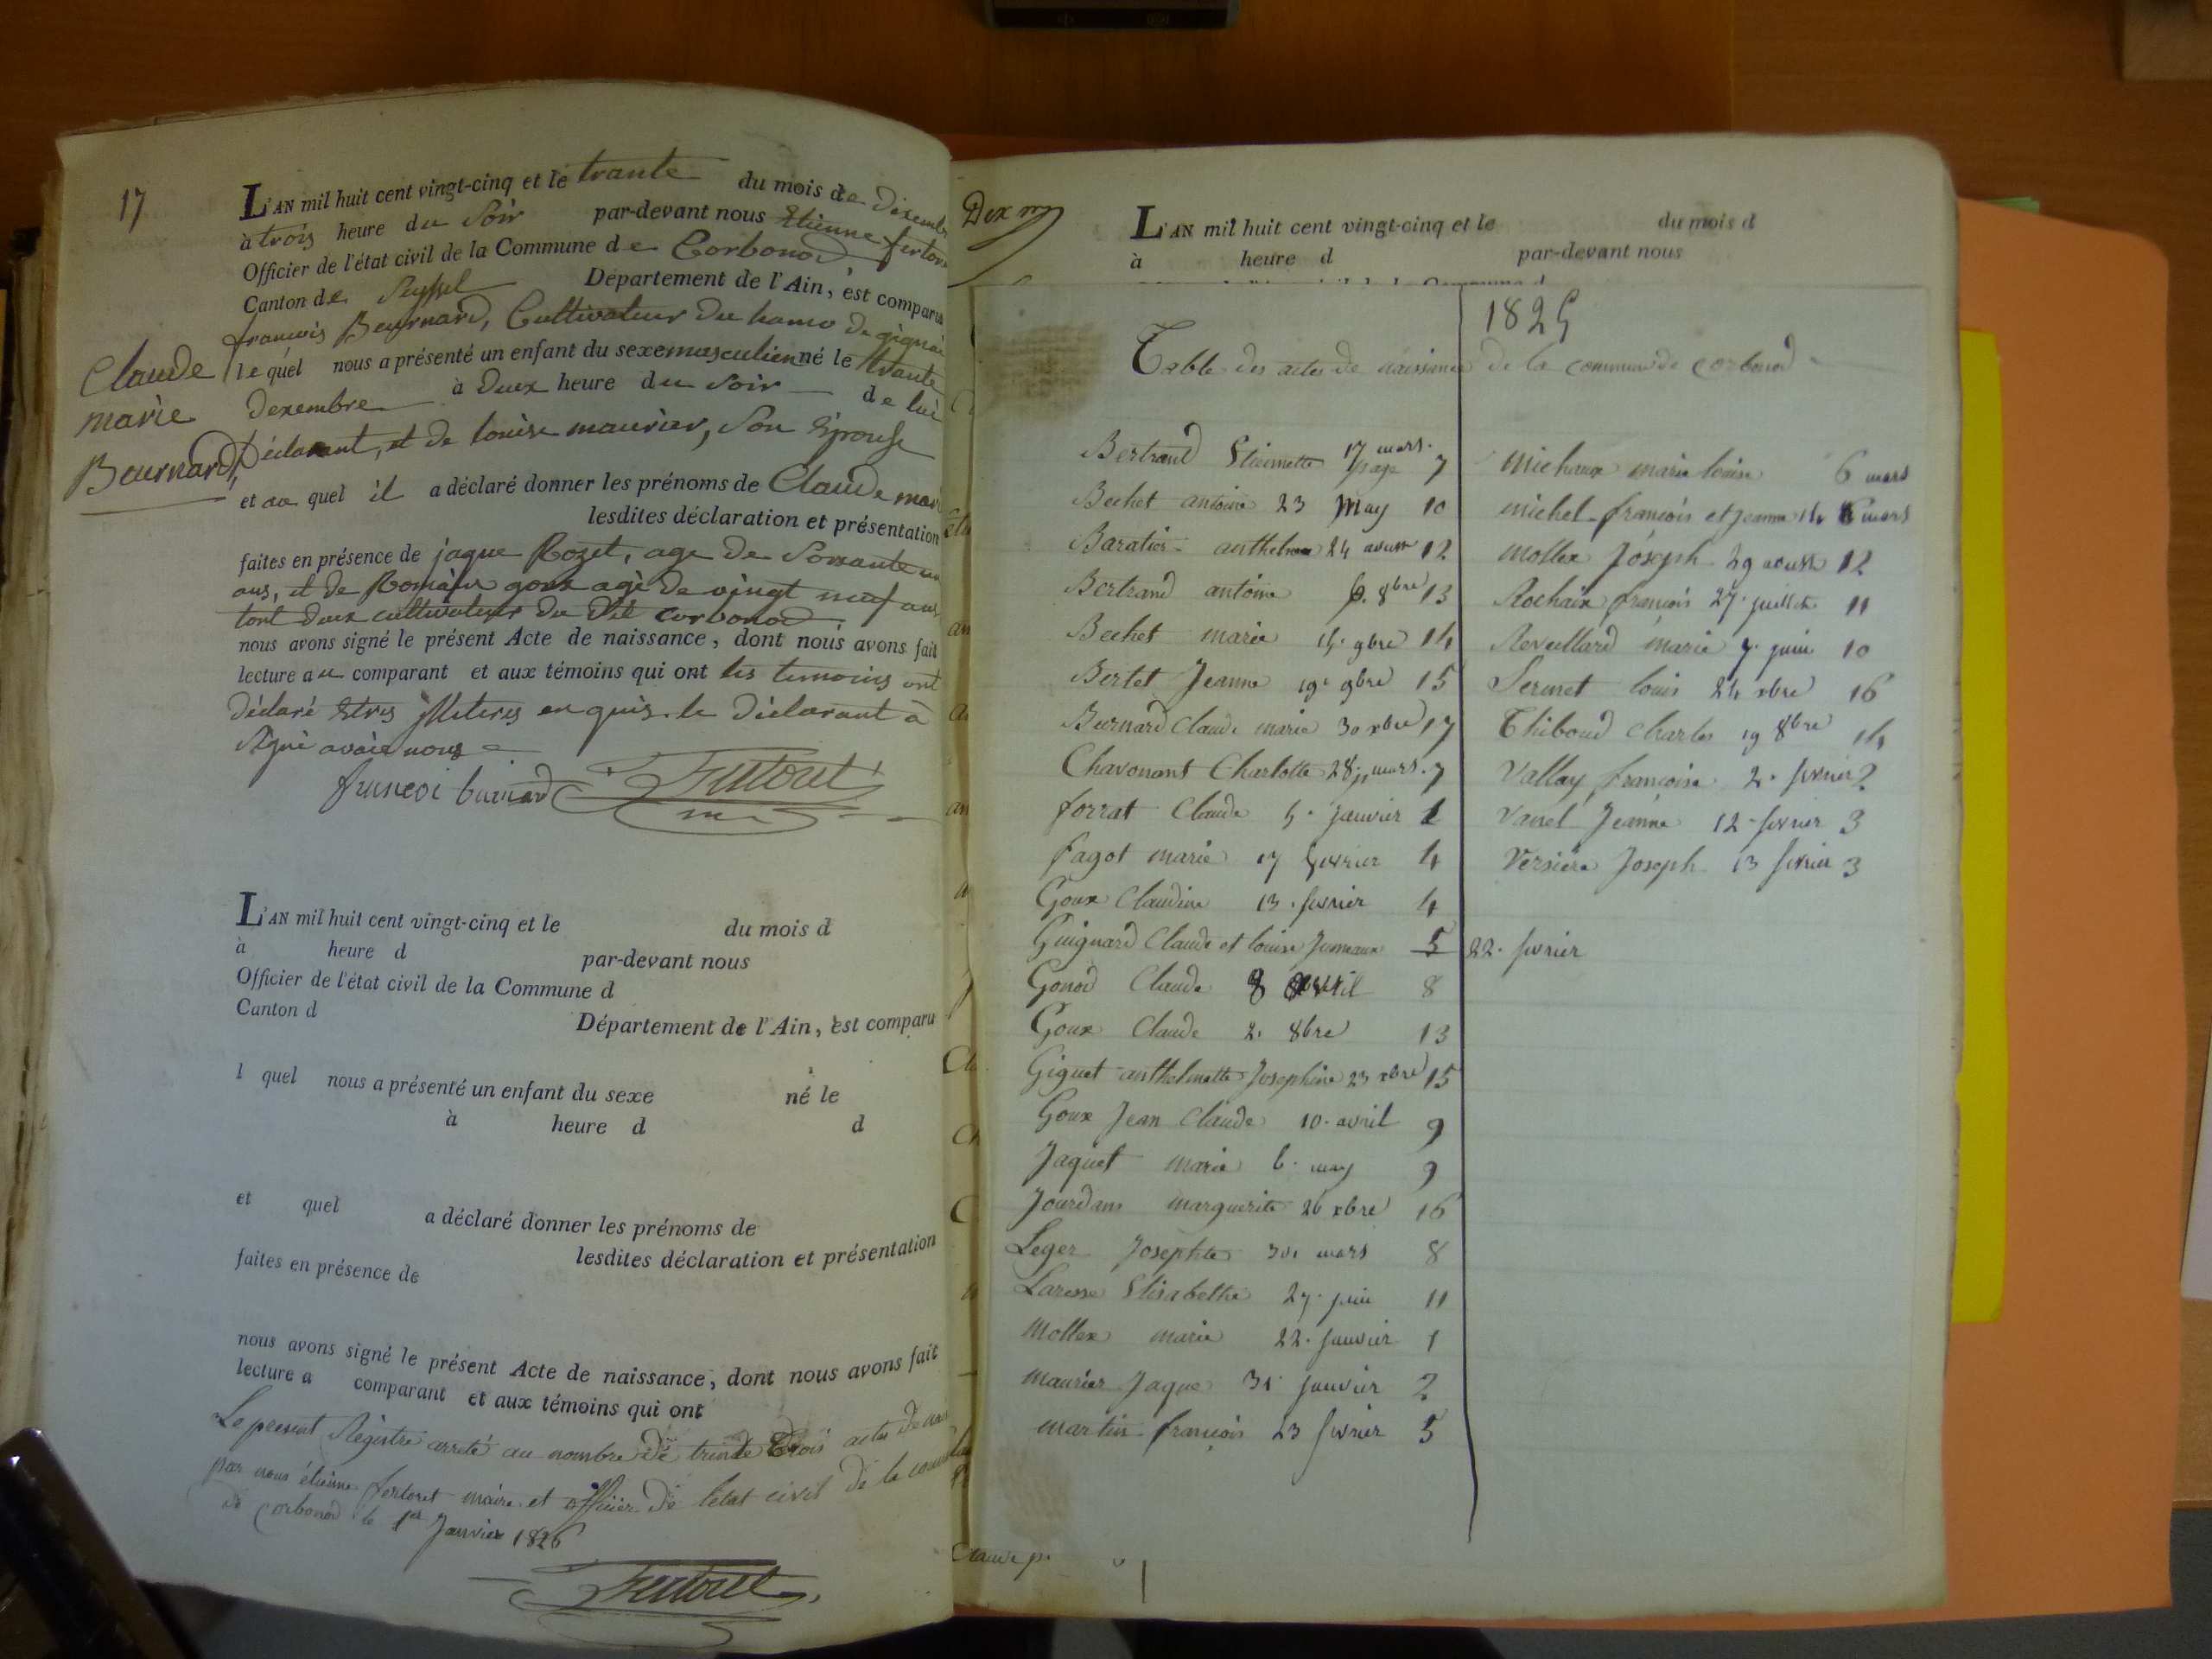 17
L'AN mil huit cent vingt-cinq et le trante du mois de dexembre
à trois heure du Soir par-devant nous Etienne fertoret
Officier de l'état civil de la Commune de Corbonod
Canton de Seyssel Département de l'Ain, est comparu
francois Beurnard, Cultivateur du hamo de
le quel nous a présenté un enfant du sexe masculien né le trante
dexembre à deux heure du Soir de lui
Déclarant, et de louise maurier, Son Epouse
et au quel il a déclaré donner les prénoms de Claude marie
lesdites déclaration et présentation
faites en présence de jaque Rozet, age de Soixante
ans, et de Romain goux agè de vingt neuf ans
tout deux cultivateur du dit corbonod
nous avons signé le présent Acte de naissance, dont nous avons fait
lecture au comparant et aux témoins qui ont les temoins ont
déclaré Etres Illeteres en quis. le déclarant à
Signè avaic nous
Claude
marie
Beurnard
L'AN mil huit cent vingt-cinq et le du mois d
à heure d par-devant nous
Officier de l'état civil de la Commune d
Canton d Département de l'Ain, est comparu
l quel nous a présenté un enfant du sexe né le
à heure d d
et quel a déclaré donner les prénoms de
lesdites déclaration et présentation
faites en présence de
nous avons signé le présent Acte de naissance, dont nous avons fait
lecture a comparant et aux témoins qui ont
Le present Régistre arreté au nombre de trente trois actes de
par nous étienne fertoret maire et officier de l'état civil de la
de Corbonod le 1er Janvier 1826
Fertoret
L'AN mil huit cent vingt-cinq et le du mois d
à heure d par-devant nous
1825
Table des actes de naissance de la commune de corbonod
Bertrand Etiennette 17 mars. page 7
Bechet antoine 23 May 10
Baratier anthelme 24 aoust 12
Bertrand antoine 6. 8bre 13
Bechet marie 15. 9bre 14
Bertet Jeanne 19. 9bre 15
Burnard Claude marie 30 xbre 17
Chavonant Charlotte 28 mars. 7
forrat Claude 5. janvier 1
fagot marie 17 fevrier 4
Goux Claudine 13. fevrier 4
Guignard Claude et louise Jumeaux 5 22. fevrier
Gonod Claude 8 avril 8
Goux Claude 2. 8bre 13
Giguet anthelmette Josephine 23 xbre 15
Goux Jean Claude 10. avril 9
Jaquet marie 6. may 9
Jourdans marguerite 26 xbre 16
Leger Josephte 30. mars 8
Laresse Elisabethe 27. juin 11
Mollex marie 22. janvier 1
Maurier Jaque 31 janvier 2
martin françois 23 fevrier 5
Michaux marie louise 6 mars
michel françois et Jeanne 14 mars
Mollex Joseph 29 aoust 12
Rochaix françois 27. juillet 11
Reveillard marie 7. juin 10
Sermet louis 24 xbre 16
Thiboud Charles 19 8bre 14
Vallay françoise 2. fevrier 2
Vanel Jeanne 12. fevrier 3
Versiere Joseph 13 fevrier 3